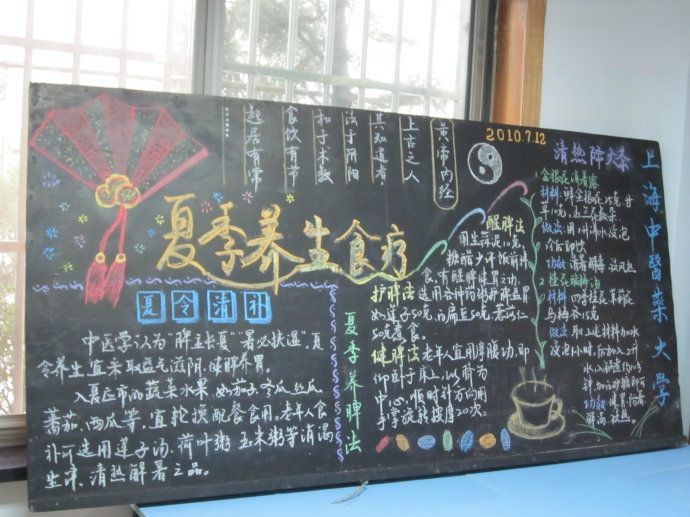 黄帝内经
上古之人
其知道者
法于阴阳
和于术数
食饮有节
起居有常
2010.7.12
夏季养生食疗
夏令清补
中医学认为"脾主长夏""暑必挟湿",夏
令养生宜采取益气滋阴、健脾养胃。
入夏应市的蔬菜水果,如茄子冬瓜丝瓜
番茄、西瓜等,宜轮换配餐食用。老年人食
补可选用莲子汤、荷叶粥、玉米粥等消渴
生津,清热解暑之品。
夏季养脾法
醒脾法
用生蒜泥10克,
糖醋少许饭前拌
食,有醒脾健胃之功.
护脾法 选用各种药粥护脾益胃
如莲子50克,白扁豆50克 薏仁
50克煮食.
健脾法 老年人宜用摩腹功,即
仰卧于床上,以脐为
中心,顺时针方向用
手掌旋转按摩20次.
清热降火茶
1 金银花清暑露
材料:鲜金银花15克 甘
草10克
做法: 用
冷后即饮
功效
2
材料
乌梅茶15克
做法 取上述材料加水
浸泡
功效 健胃
上海中醫药大学